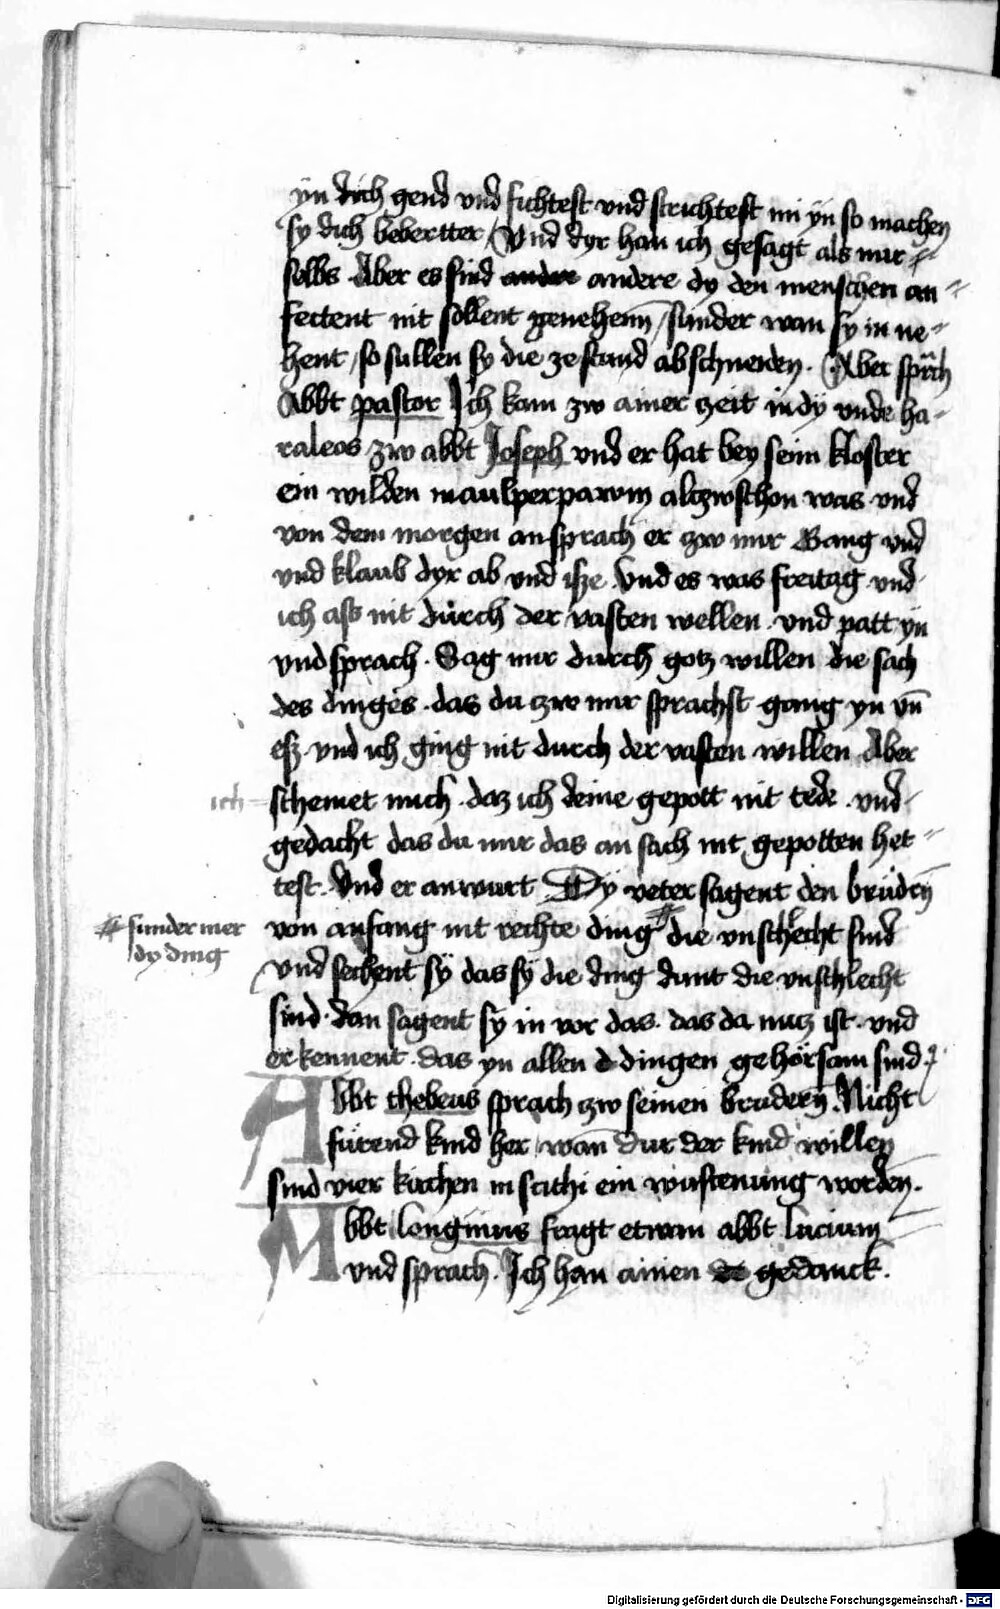 yn dich gend vnd fichtest vnd strichtest mi yn so machen
sy dich beberter / Vnd dyr han ich gesagt als mir
selbs Aber es sind andere andere dy den menschen an
fectent nit sollent genehenn / sunder wan sy in ne
hent / so sullen sy die ze stand abschneiden. Aber sprch
Abbt pastor Ich kam zw ainer zeit in dy vnde ha
raleos zw abbt Joseph vnd er hat bey seim kloster
ein wilden maulperpawm altzwschon was vnd
von dem morgen an sprach er zw mir Gang vnd
vnd klaub dyr ab vnd isze Vnd es was freitag vnd
ich ass nit durch der vasten wellen . vnd patt yn
vnd sprach . Sag mir durch gotz willen die sach
des dinges . das du zw mir sprachst gang yn vn̄
esz vnd ich ging nit durch der vasten willen Aber
ich schemet mich . daz ich deine gepott nit tede . vnd
gedacht das du mir das an sach nit gepotten het
test . Vnd er anwurt Dy veter sagent den brudern
von anfang nit rechte ding # die vnschlecht sind
# sunder mer
dy ding
vnd sechent sy das sy die ding dant die vnschlecht
sind . dan sagent sy in vor das . das da nutz ist . vnd
erkennent . das yn allen d dingen gehörsam sind
Abbt thebeus sprach zw seinen brudern . Nicht
fürend kind her / wan̄ dur der kind willen
sind vier kirchen in scithi ein wüstenung worden .
Abbt longinus fragt etwan abbt lucium
vnd sprach . Ich han ainen de gedanck .